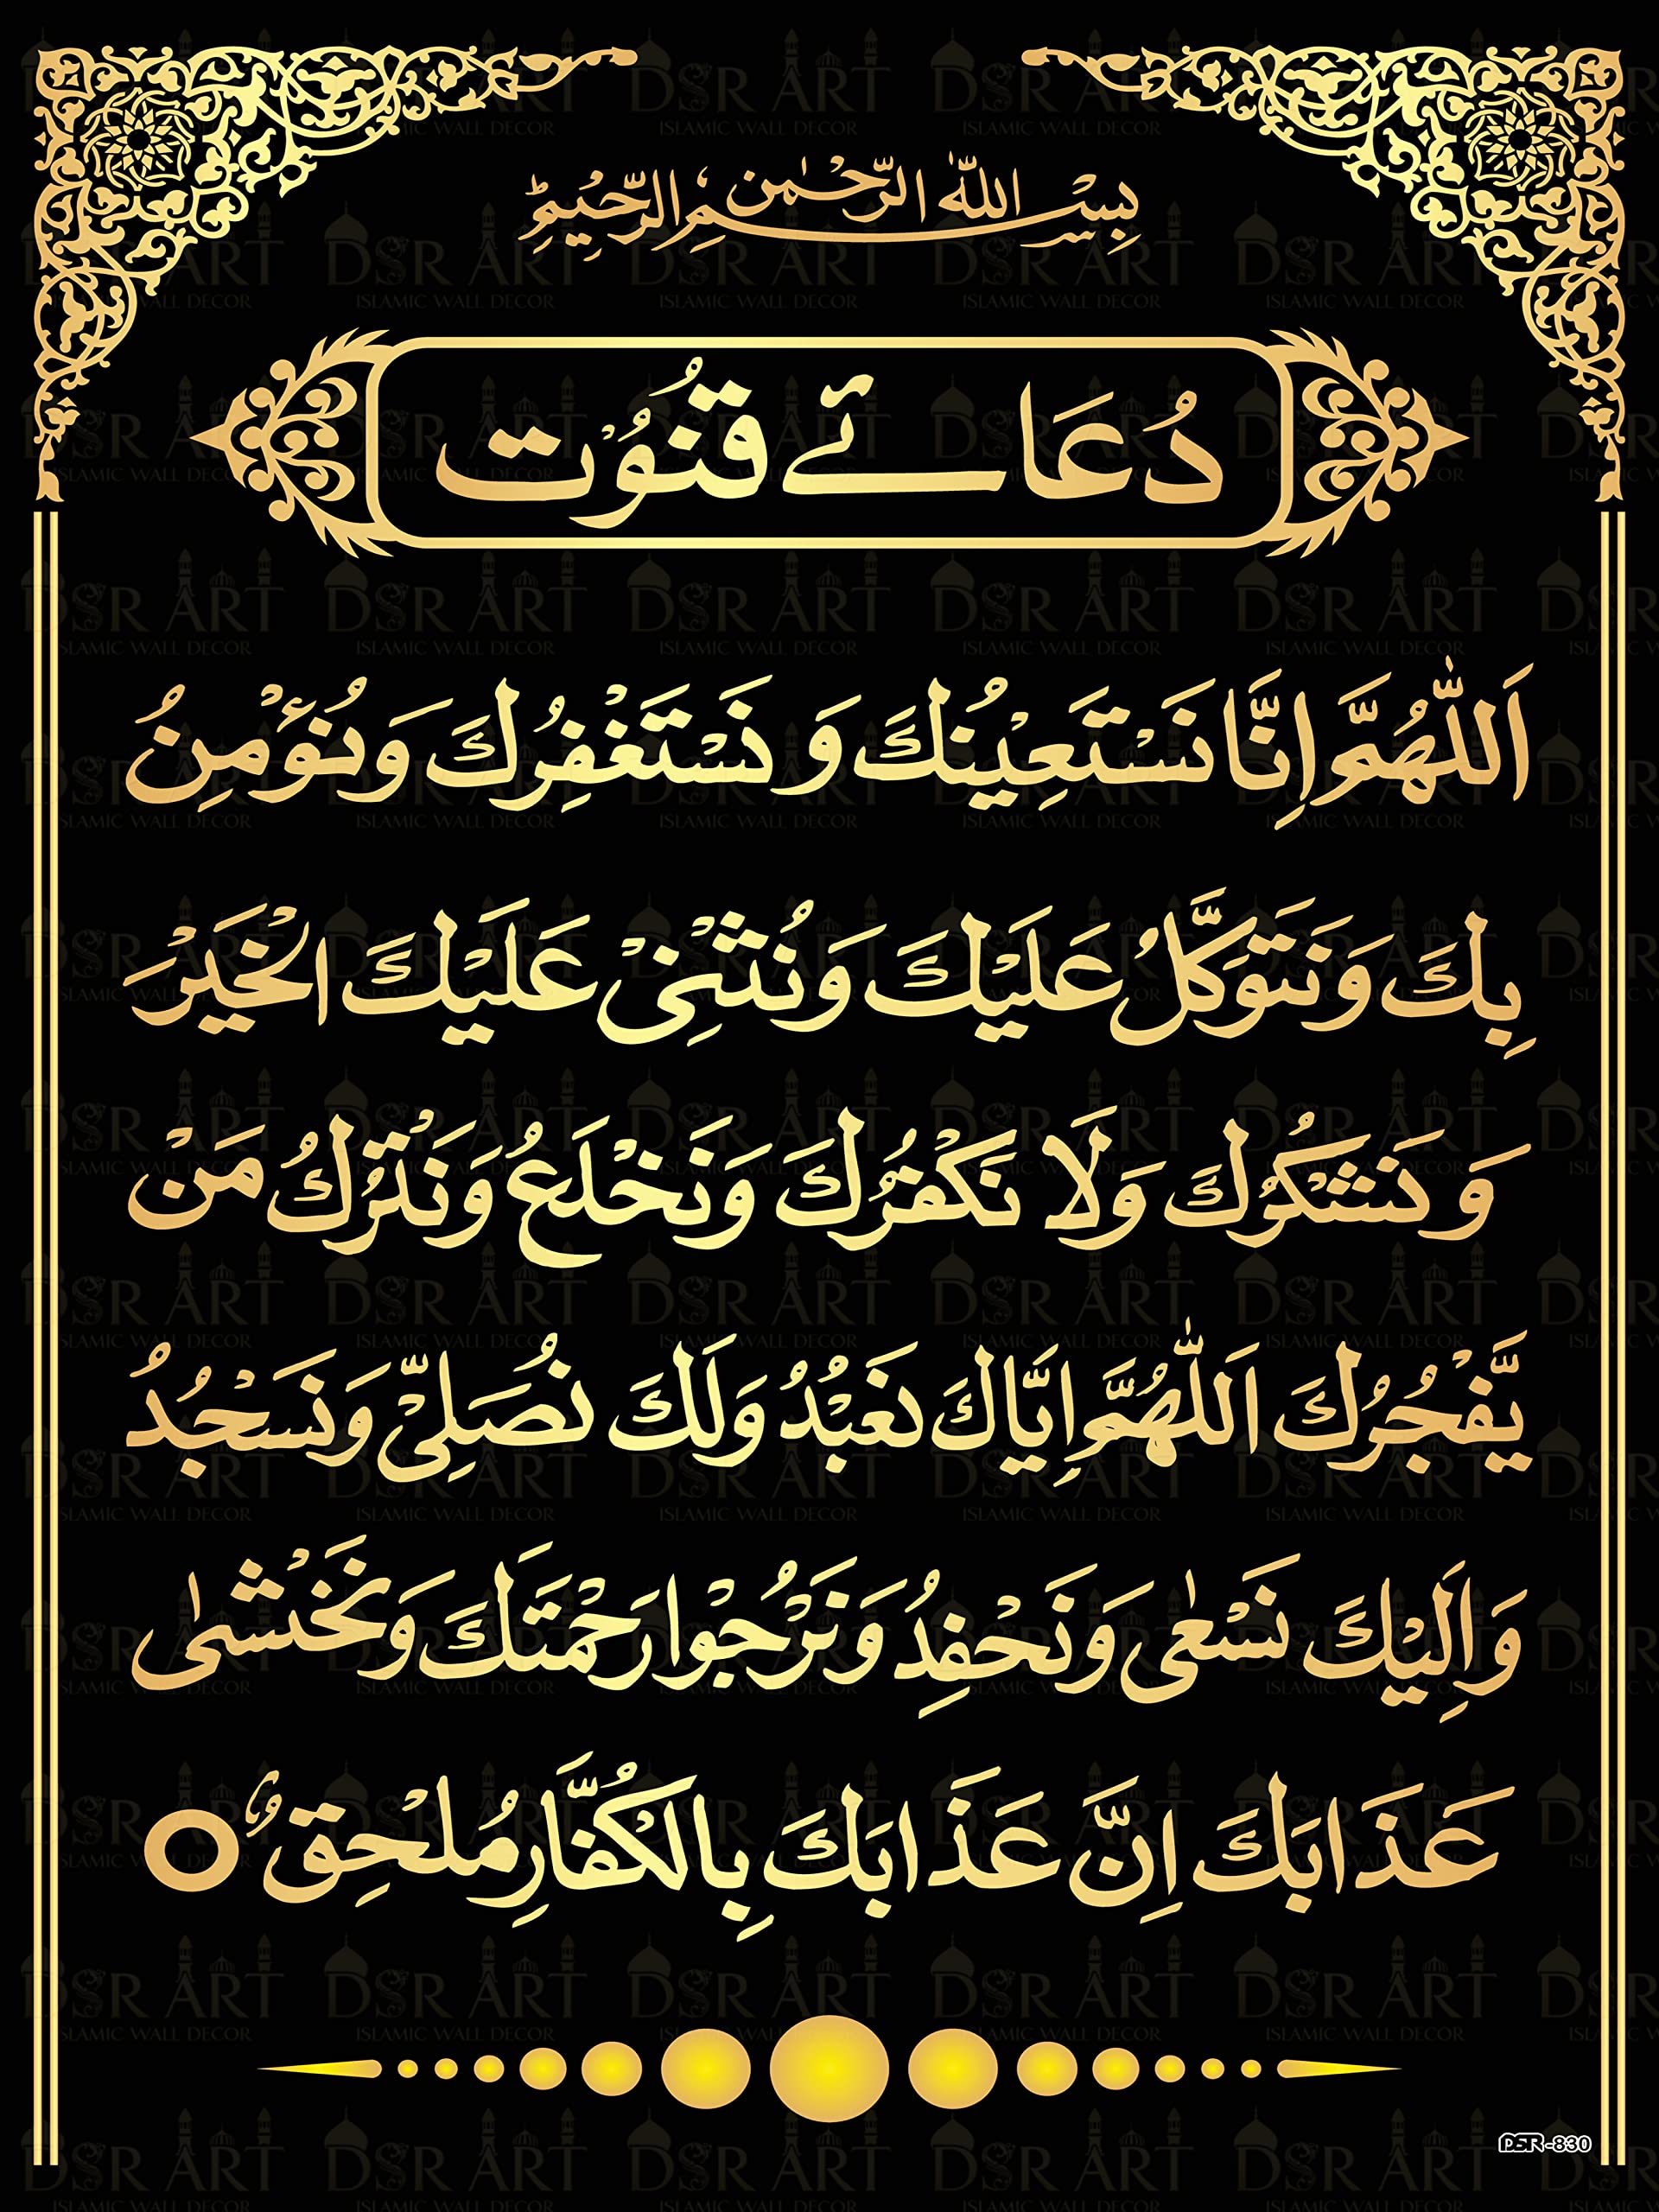 بِسْمِ اللّٰهِ الرَّحْمٰنِ الرَّحِيْمِ
دُعَائے قُنُوْت
اَللّٰهُمَّ اِنَّا نَسْتَعِيْنُكَ وَ نَسْتَغْفِرُكَ وَنُؤْمِنُ
بِكَ وَنَتَوَكَّلُ عَلَيْكَ وَنُثْنِیْ عَلَيْكَ الْخَيْرَ
وَ نَشْكُرُكَ وَلَا نَكْفُرُكَ وَنَخْلَعُ وَنَتْرُكُ مَنْ
يَّفْجُرُكَ اَللّٰهُمَّ اِيَّاكَ نَعْبُدُ وَلَكَ نُصَلِّیْ وَنَسْجُدُ
وَاِلَيْكَ نَسْعٰی وَنَحْفِدُ وَنَرْجُوْا رَحْمَتَكَ وَنَخْشٰی
عَذَابَكَ اِنَّ عَذَابَكَ بِالْكُفَّارِ مُلْحِقٌ ○
DSR-830
DSR ART
ISLAMIC WALL DECOR